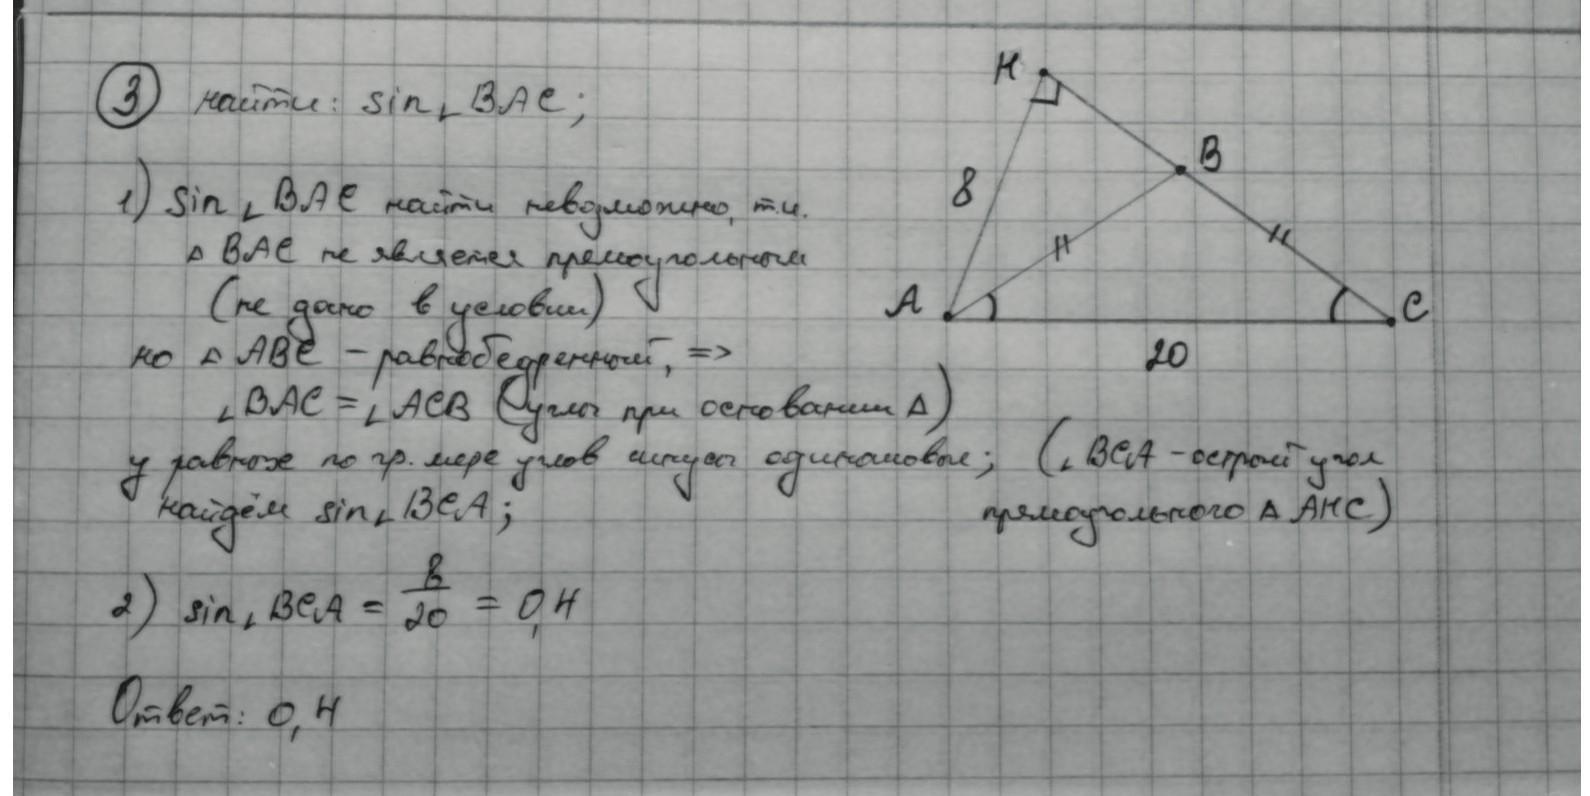 3 найти: sin∠BAC;
1) sin∠BAC найти невозможно, т.к.
△BAC не является прямоугольным
(не дано в условии)
но △ABC – равнобедренный, =>
∠BAC = ∠ACB (углы при основании △)
у равных по гр. мере углов синусы одинаковые; (∠BCA – острый угол
найдём sin∠BCA; прямоугольного △AHC)
2) sin∠BCA = 8/20 = 0,4
Ответ: 0,4
H
B
8
A
C
20